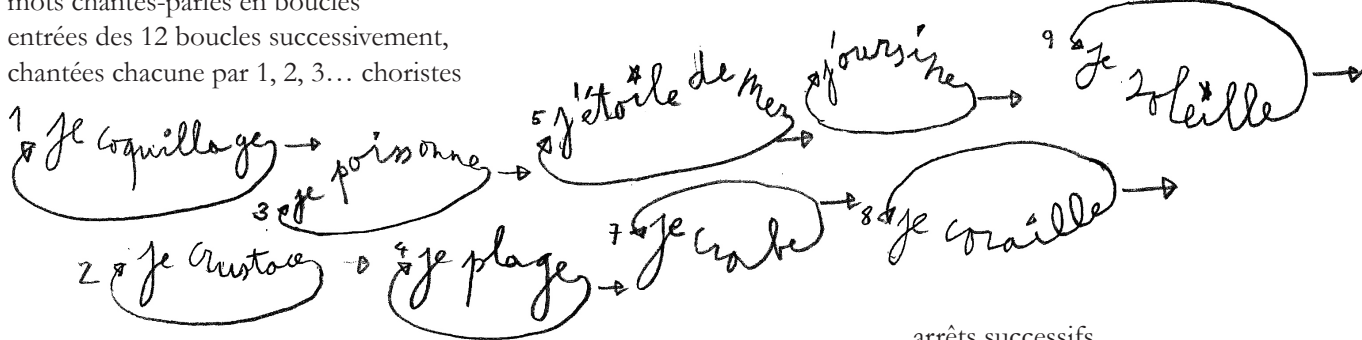 mots chantés-parlés en boucles
entrées des 12 boucles successivement,
chantées chacune par 1, 2, 3… choristes
1 je coquillage
2 je crustace
3 je poissonne
4 je plage
5 j'étoile de mer
j'oursine
7 je crabe
8 je coraille
9 je soleille
arrêts successifs